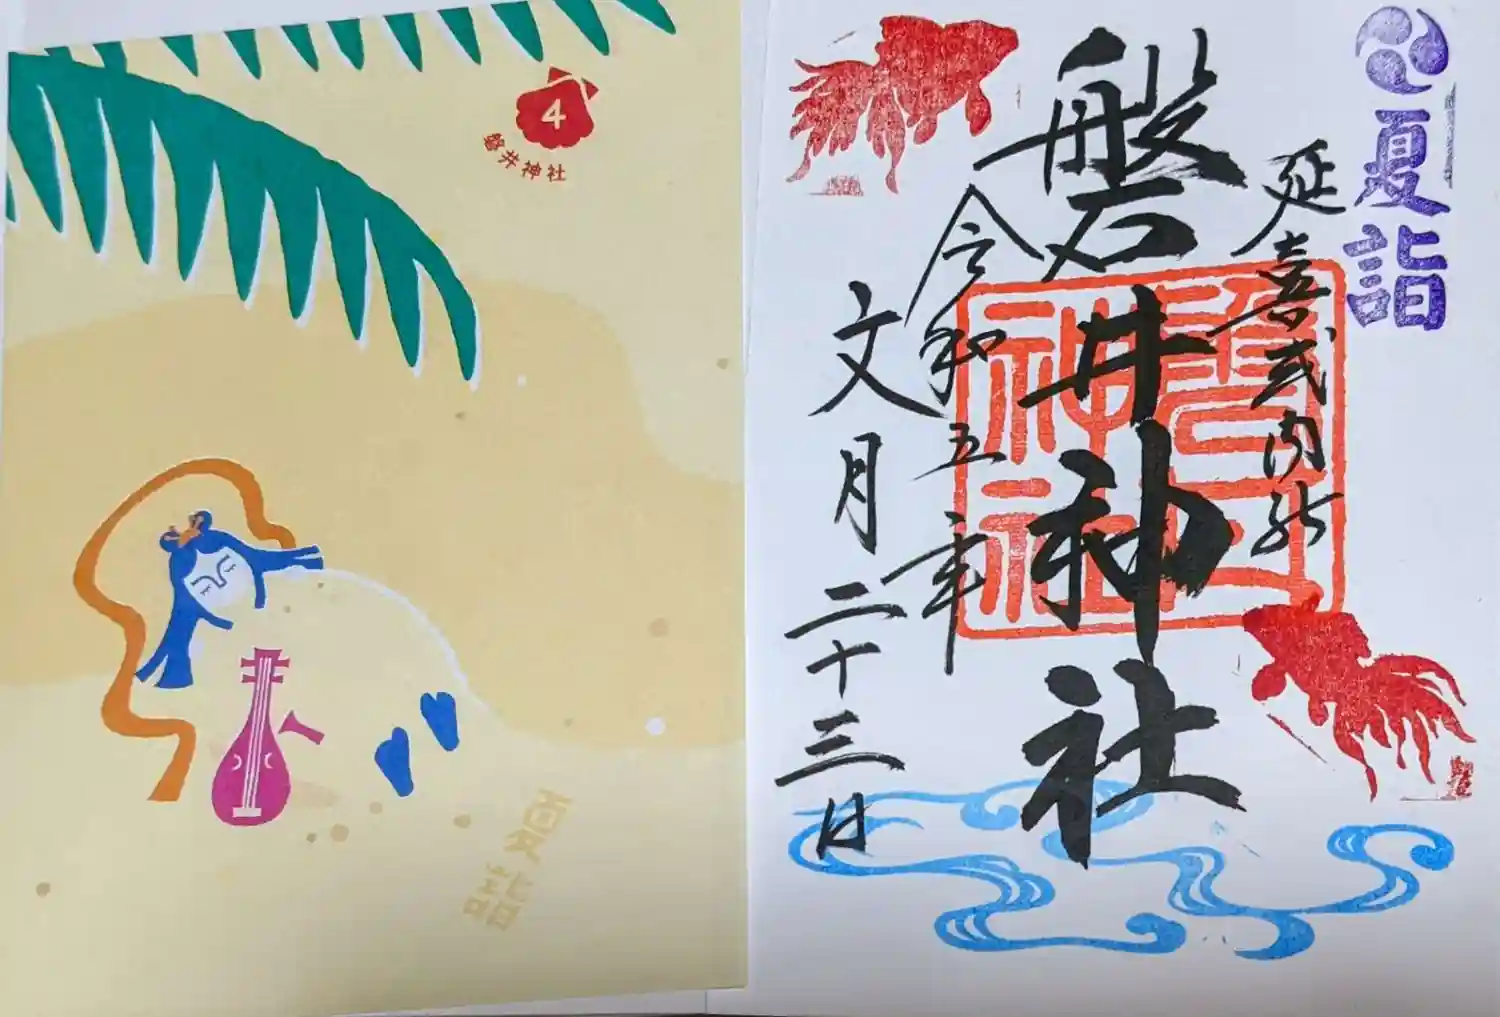 4
磐井神社
夏詣
夏詣
延喜式内社
磐井神社
磐井神社
令和五年
文月二十三日